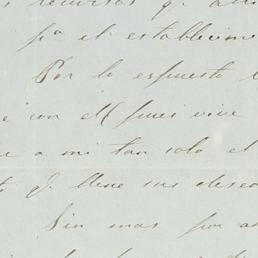 recursos q.
pª el establecim
Por lo espuesto
e con el pues vive
e a mi tan solo el
q. llene sus deseo
Sin mas por a